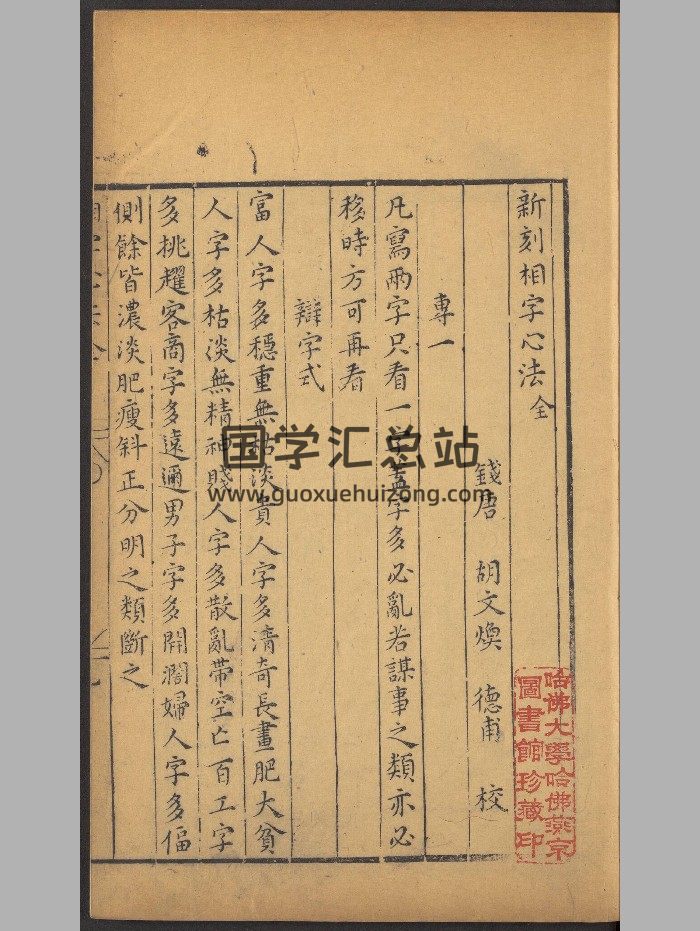 新刻相字心法全
錢唐 胡文煥 德甫 校
專一
凡寫兩字只看一字蓋字多必亂若謀事之類亦必
移時方可再看
辯字式
富人字多穩重無枯淡貴人字多清奇長畫肥大貧
人字多枯淡無精神賤人字多散亂帶空亡百工字
多挑趯客商字多遠邇男子字多開濶婦人字多偪
側餘皆濃淡肥瘦斜正分明之類斷之
哈佛大學哈佛燕京
圖書館珍藏印
国学汇总站
www.guoxuehuizong.com